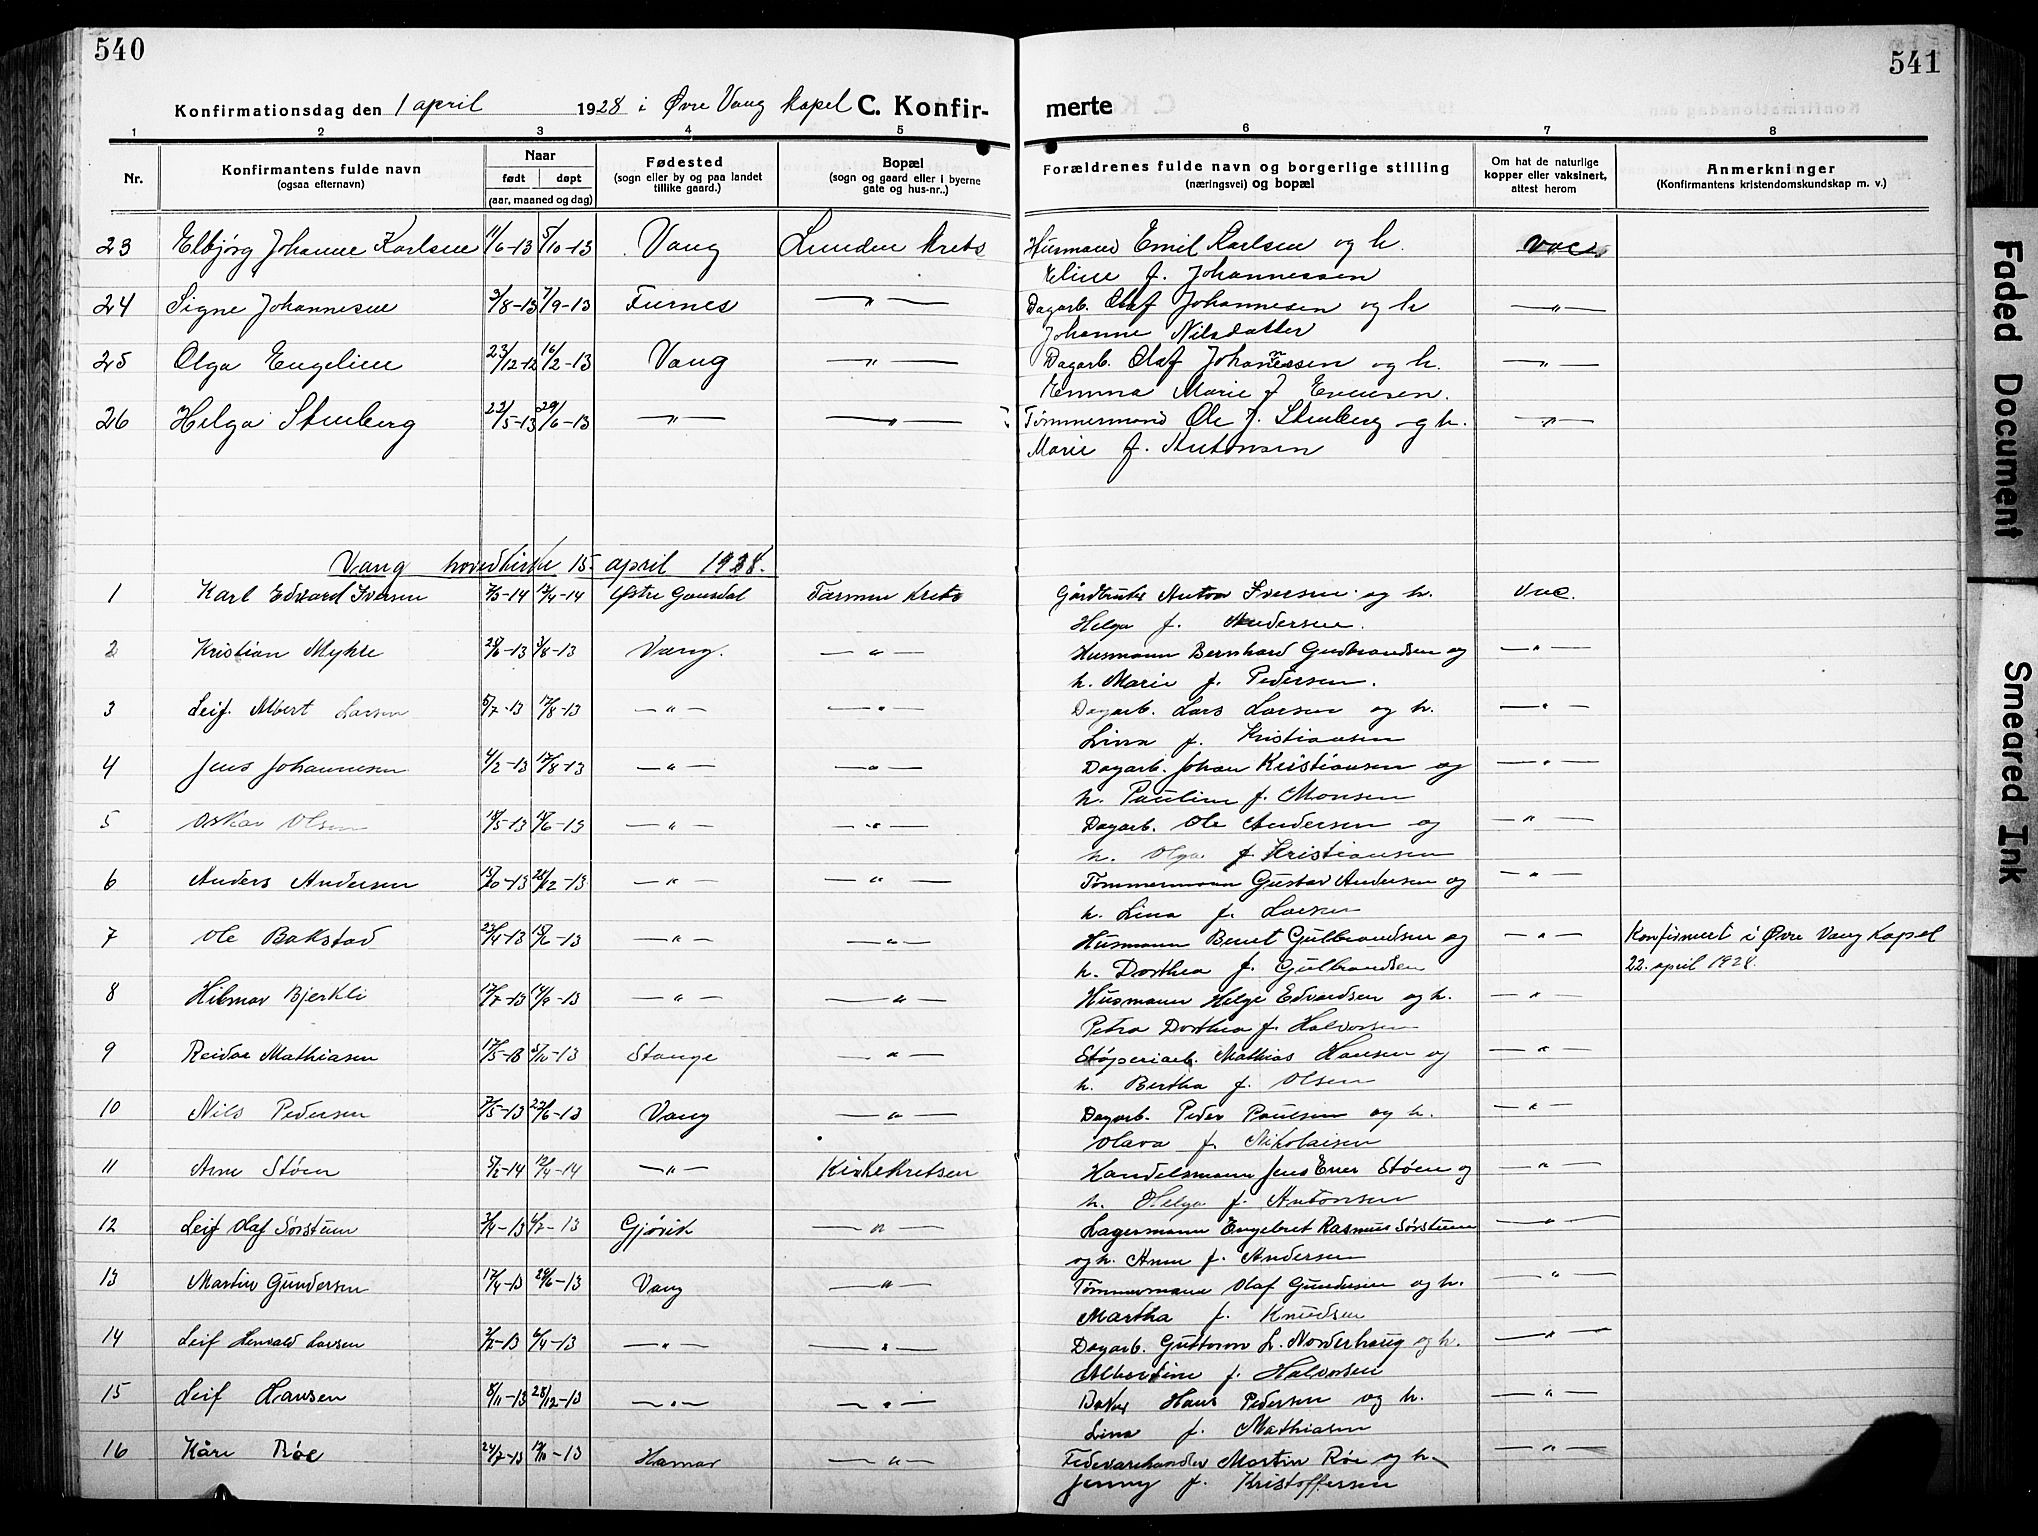 540
541
Konfirmationsdag den 1 april 1928 i Øvre Vang Kapel C. Konfir-
merte
1 2 3 4 5 6 7 8
Nr.
Konfirmantens fulde navn
(ogsaa efternavn)
Naar
født døpt
(aar, maaned og dag)
Fødested
(sogn eller by og paa landet
tillike gaard.)
Bopæl
(sogn og gaard eller i byerne
gate og hus-nr..)
Forældrenes fulde navn og borgerlige stilling
(næringsvei) og bopæl
Om hat de naturlige
kopper eller vaksinert,
attest herom
Anmerkninger
(Konfirmantens kristendomskundskap m. v.)
23 Elbjørg Johanne Karlsen 11/6-13 5/10-13 Vang Lunden krets Husmand Emil Karlsen og h. vac.
Eline f. Johannessen
24 Signe Johannesen 3/8-13 7/9-13 Furnes —"— Dagarb. Olaf Johannesen og h —"—
Johanne Nilsdatter
25 Olga Engeline 23/12-12 16/2-13 Vang —"— Dagarb. Olaf Johannessen og h. —"—
Emma Marie f Evensen.
26 Helga Stenberg 22/5-13 29/6-13 —"— —"— Tømmermand Ole J. Stenberg og h. —"—
Marie f. Antonsen
Vang hovedkirke 15. april 1928.
1 Karl Edvard Iversen 7/3-14 12/4-14 Østre Gausdal Farmen krets Gårdbruker Anton Iversen og h. vac.
Helga f. Andersen.
2 Kristian Myhre 28/6-13 3/8-13 Vang. —"— Husmann Bernhard Gudbrandsen og —"—
h. Marie f. Pedersen.
3 Leif Albert Larsen 5/7-13 17/8-13 —"— —"— Dagarb. Lars Larsen og h. —"—
Lina f. Kristiansen
4 Jens Johannesen 4/2-13 17/8-13 —"— —"— Dagarb. Johan Kristiansen og —"—
h. Pauline f. Monsen
5 Oskar Olsen 18/5-13 /6-13 —"— —"— Dagarb. Ole Andersen og —"—
h. Olga f Kristiansen
6 Anders Andersen 15/10-13 28/12-13 —"— —"— Tømmermann Gustav Andersen og —"—
h. Lina f. Larsen
7 Ole Bakstad 23/4-13 15/6-13 —"— —"— Husmann Bernt Gulbrandsen og —"— Konfirmert i Øvre Vang Kapel
h. Dorthea f. Gulbrandsen 22. april 1928.
8 Hilmar Bjerkli 17/7-13 14/9-13 —"— —"— Husmann Helge Edvardsen og h. —"—
Petra Dorthea f. Halvorsen
9 Reidar Mathiasen 17/5-13 -13 Stange —"— Støperiarb. Mathias Hansen og —"—
h. Bertha f. Olsen
10 Nils Pedersen 7/5-13 22/6-13 Vang —"— Dagarb. Peder Paulsen og h. —"—
Olava f. Nikolaisen
11 Arne Støen 5/2-14 12/4-14 —"— Kirkekretsen Handelsmann Jens Støen og —"—
h. Helga f. Antonsen
12 Leif Olaf Sørstuen -13 -13 Gjøvik —"— Lagermann Engebret Rasmus Sørstuen —"—
og h. Anna f. Andersen
13 Martin Gundersen 17/4-13 29/6-13 Vang —"— Tømmermann Olaf Gundersen og h. —"—
Martha f. Knudsen
14 Leif Larsen 2/2-13 6/4-13 —"— —"— Dagarb. L. Norderhaug og h. —"—
Albertine f. Halvorsen
15 Leif Hansen 8/11-13 28/12-13 —"— —"— Baker Hans Pedersen og h. —"—
Lina f. Mathiasen
16 Kåre Røe 24/7-13 -13 Hamar —"— Fedevarehandler Martin Røe og h. —"—
Jenny f. Kristoffersen
Faded Document
Smeared Ink